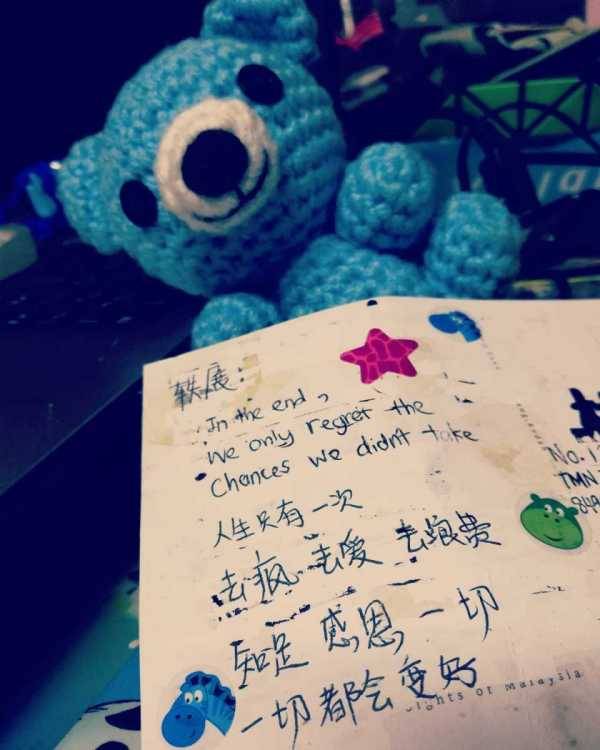 轶展：
In the end,
we only regret the
Chances we didn't take
人生只有一次
去疯 去爱 去浪费
知足 感恩 一切
一切都会变好
No.1
TMN
849
of Malaysia